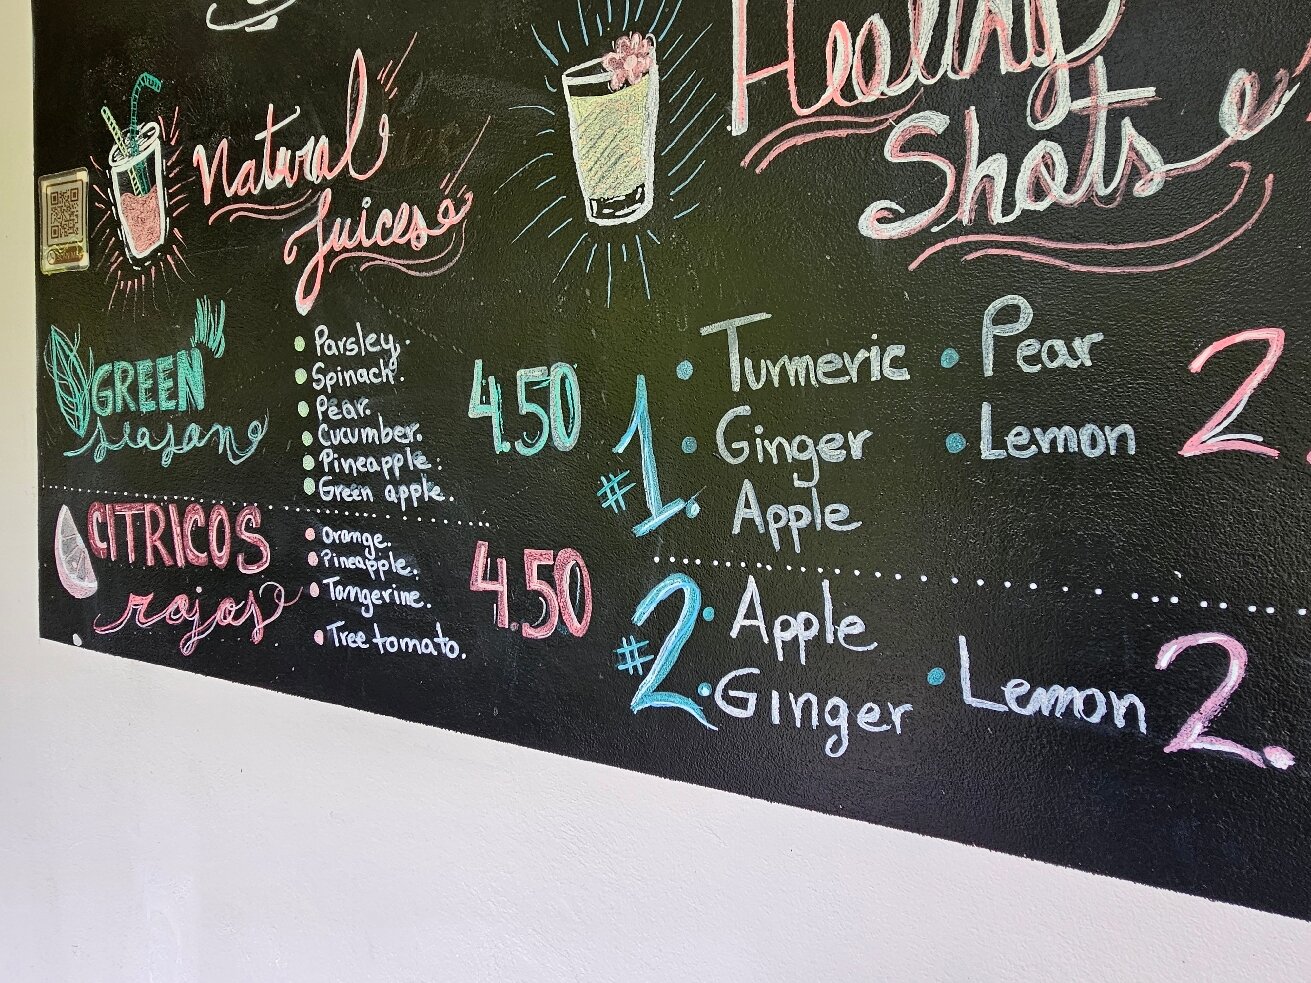 Natural
Juices
GREEN
season
Parsley.
Spinach.
Pear.
Cucumber.
Pineapple.
Green apple.
4.50
CITRICOS
rojos
Orange.
Pineapple.
Tangerine.
Tree tomato.
4.50
Healthy
Shots
#1.
Turmeric
Ginger
Apple
Pear
Lemon
2.
#2.
Apple
Ginger
Lemon
2.